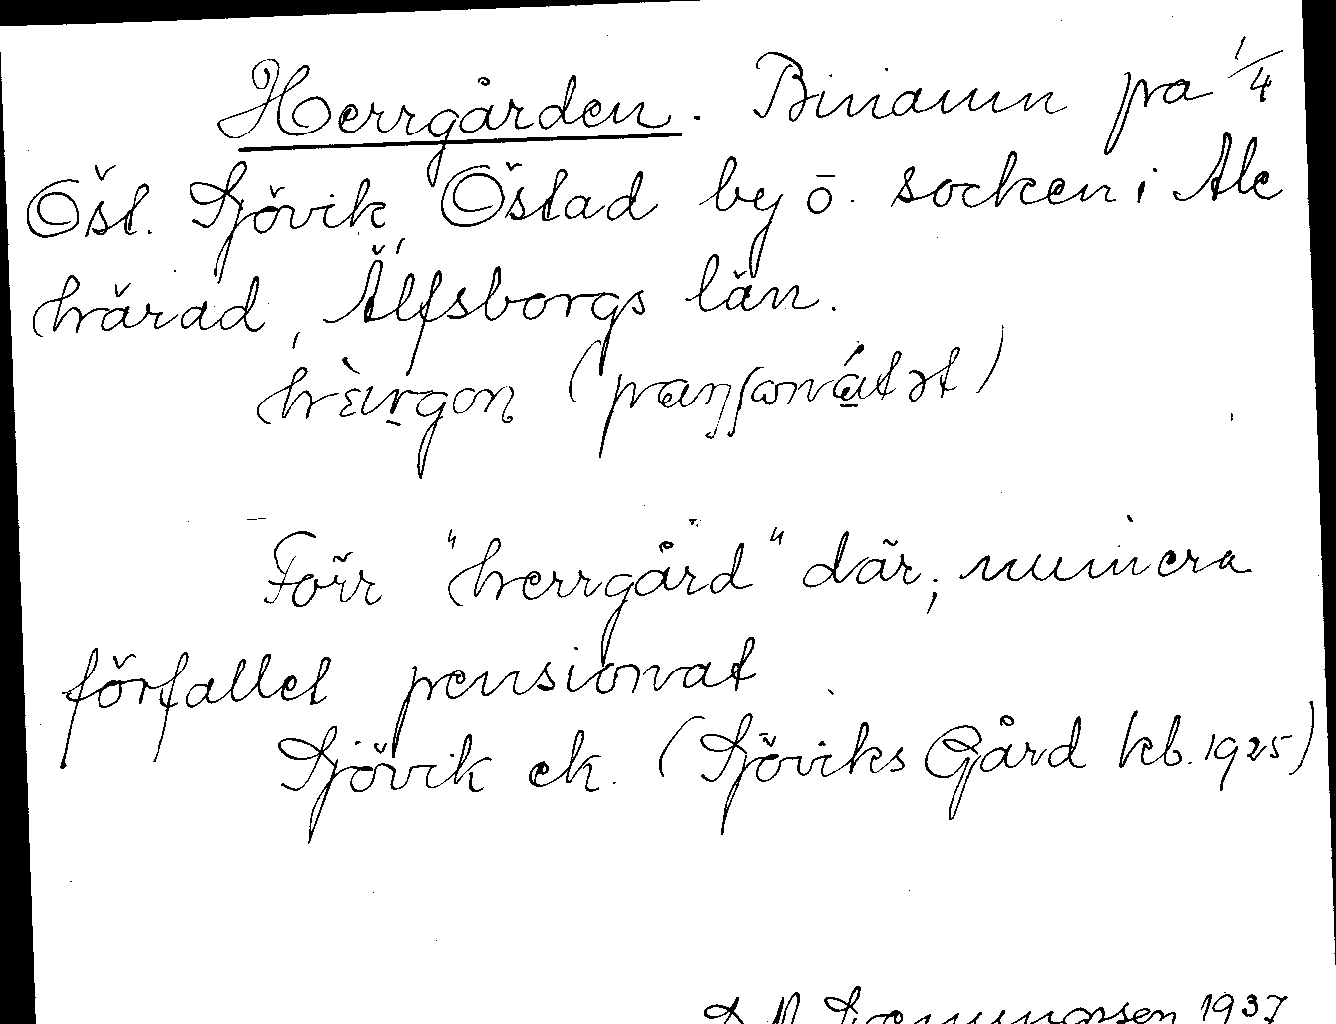 Herrgården. Binamn på 1/4
Öst. Sjövik, Östad by o. socken i Ale
härad, Älfsborgs län.
Förr "herrgård" där; numera
förfallet pensionat.
Sjövik ek. (Sjöviks Gård kb. 1925)
1937